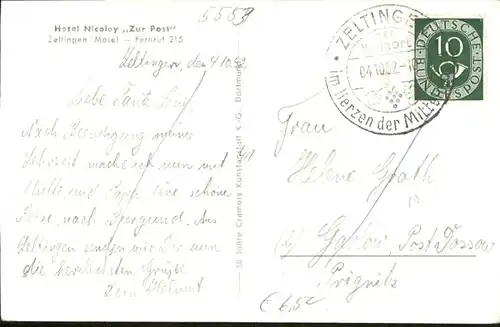 5553
Hotel Nicolay „Zur Post"
Zeltingen Mosel – Fernruf 215
Zeltingen, de 4.10.52
Liebe Tante
Nach Beendigung meiner
mache ich nun mit
Mutti und Pappi eine schöne
Reise nach Burgund. Aus
Zeltingen senden wir Dir nun
die herzlichsten Grüße
Dein Helmut
50 Jahre Cramers Kunstanstalt K.-G. Dortmund
ZELTINGEN
04.10.52
im Herzen der Mittel
DEUTSCHE
BUNDESPOST
10
Frau
Helene Grath
Post Dossow
Prignitz
€ 6,50